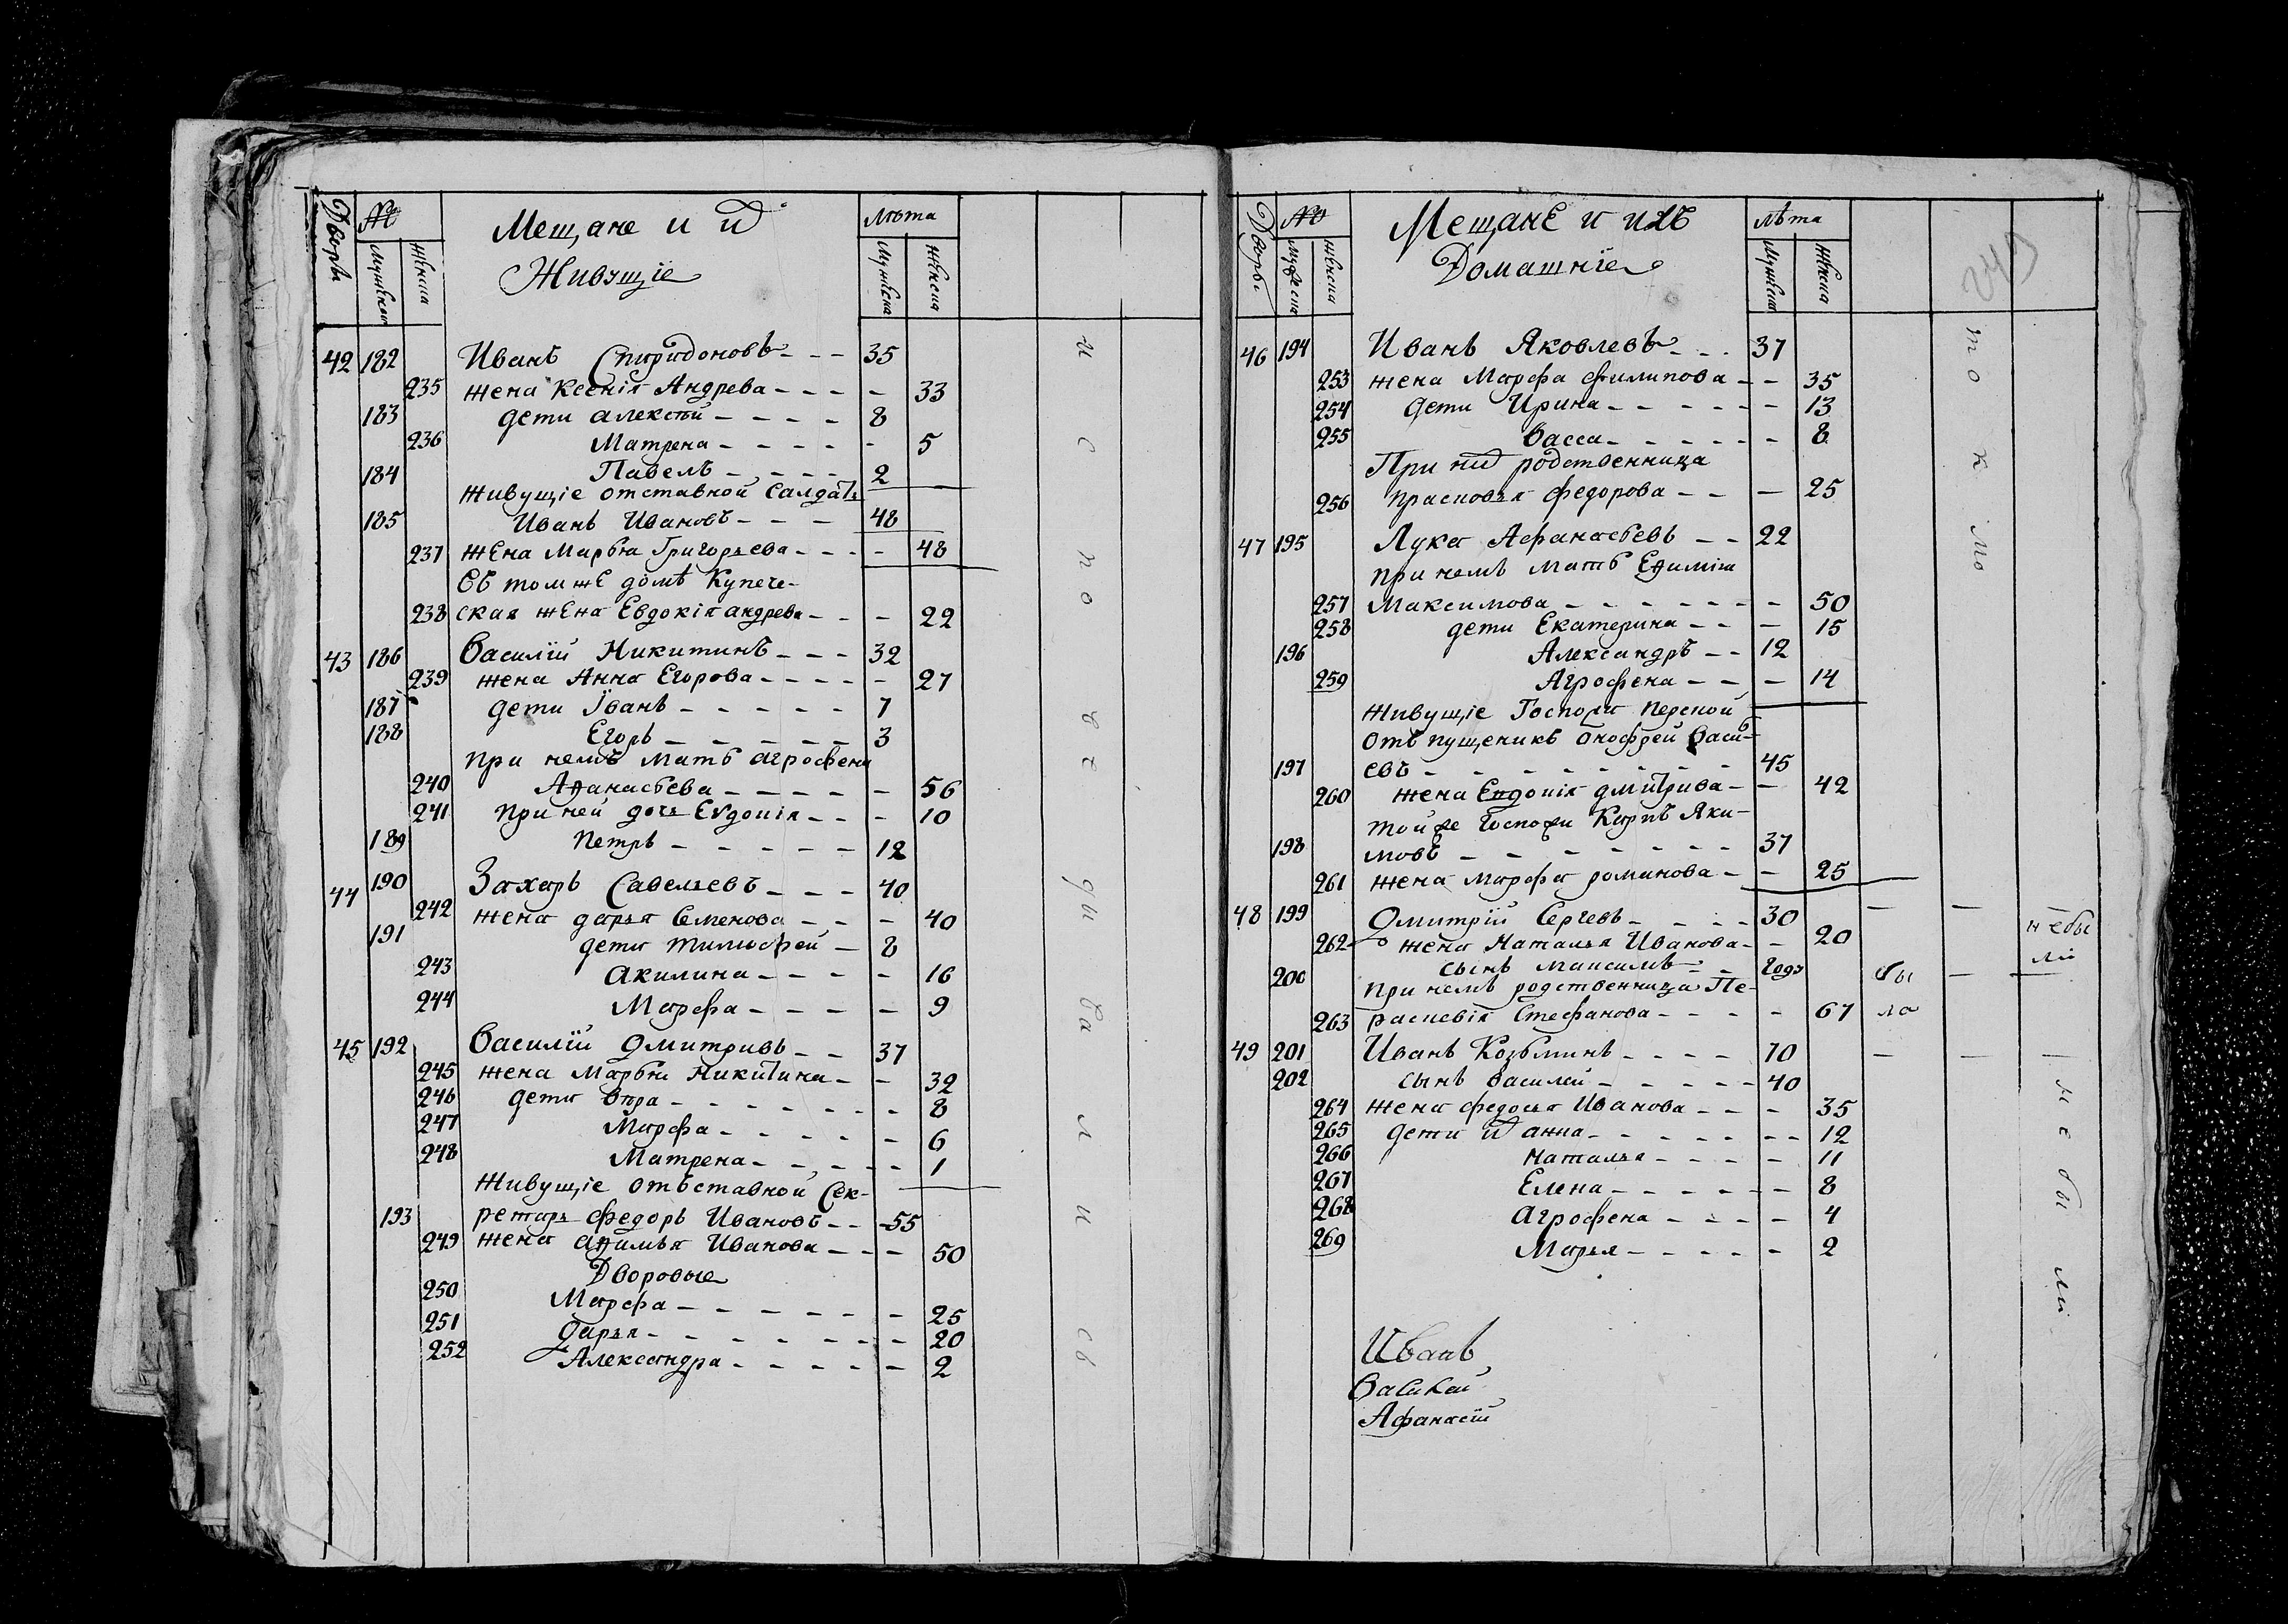 Дворы № Мещане и их Лѣта
Мужеска Женска Живущіе Мужеска Женска
42 182 Иванъ Спиридоновъ - - - 35
235 жена Ксенія Андрева - - - - 33
183 дети алексѣй - - - - 8
236 Матрена - - - - - 5
184 Павелъ - - - - 2
живущіе отставной Салдатъ
185 Иванъ Ивановъ - - - 48
237 жена Марья Григорьева - - - - 48
Въ томже домѣ Купече-
238 ская жена Евдокія андрева - - - 22
43 186 Василій Никитинъ - - - 32
239 жена Анна Егорова - - - - - 27
187 дети Іванъ - - - - - 7
188 Егоръ - - - - - 3
При немъ мать агрофена
240 Аѳанасьева - - - - - - 56
241 при ней дочь Евдокія - - - 10
189 Петръ - - - - - 12
44 190 Захаръ Савельевъ - - - 40
242 жена дарья Семенова - - - - 40
191 дети тимофей - 8
243 акилина - - - - - 16
244 Марфа - - - - - 9
45 192 Василій Дмитривъ - - 37
245 жена Марья Никитина - - 32
246 дети Вѣра - - - - - - - - 8
247 Марфа - - - - - - 6
248 Матрена - - - - - - 1
живущіе отъставной Сек-
193 ретарь федоръ Ивановъ - - 55
249 жена аѳимья Иванова - - - 50
Дворовые
250 Марфа - - - - - - - 25
251 Дарья - - - - - - - - 20
252 Александра - - - - - - 2
исповедывались
Дворы № Мещане и ихъ лѣта
Мужеска Женска Домашніе Мужеска Женска
46 194 Иванъ Яковлевъ - - - 37
253 жена Марфа филипова - - 35
254 дети Ирина - - - - - - 13
255 Васса - - - - - - 8
При них родственница
256 прасковья федорова - - - 25
47 195 Лука Афанасьевъ - - 22
при немъ мать Еѳимия
257 Максимова - - - - - - - 50
258 дети Екатерина - - - 15
196 Александръ - - 12
259 Агрофена - - - 14
живущіе Госпожи Перской
отъпущеникъ Онофрей Васи-
197 евъ - - - - - - - - 45
260 жена Евдокія дмитрива - - 42
тойже Госпожи Карпъ Яки-
198 мовъ - - - - - - - 37
261 жена марфа романова - - 25
48 199 Дмитрій Сергевъ - - - - 30 - -
262 жена Наталья Иванова - - 20
небы
ли
200 сынъ максимъ - - годъ
При немъ родственница Пе-
263 расковія Стефанова - - - - 67
бы
ла
49 201 Иванъ Козьминъ - - - - 70 - - -
202 сынъ василей - - - - - 40
264 жена федосья Иванова - - - 35
265 дети их анна - - - - - - - 12
266 наталья - - - - - 11
267 Елена - - - - - - 8
268 агрофена - - - - - 4
269 Марья - - - - - 2
токмо
небыли
Иванъ
Василей
Афанасій